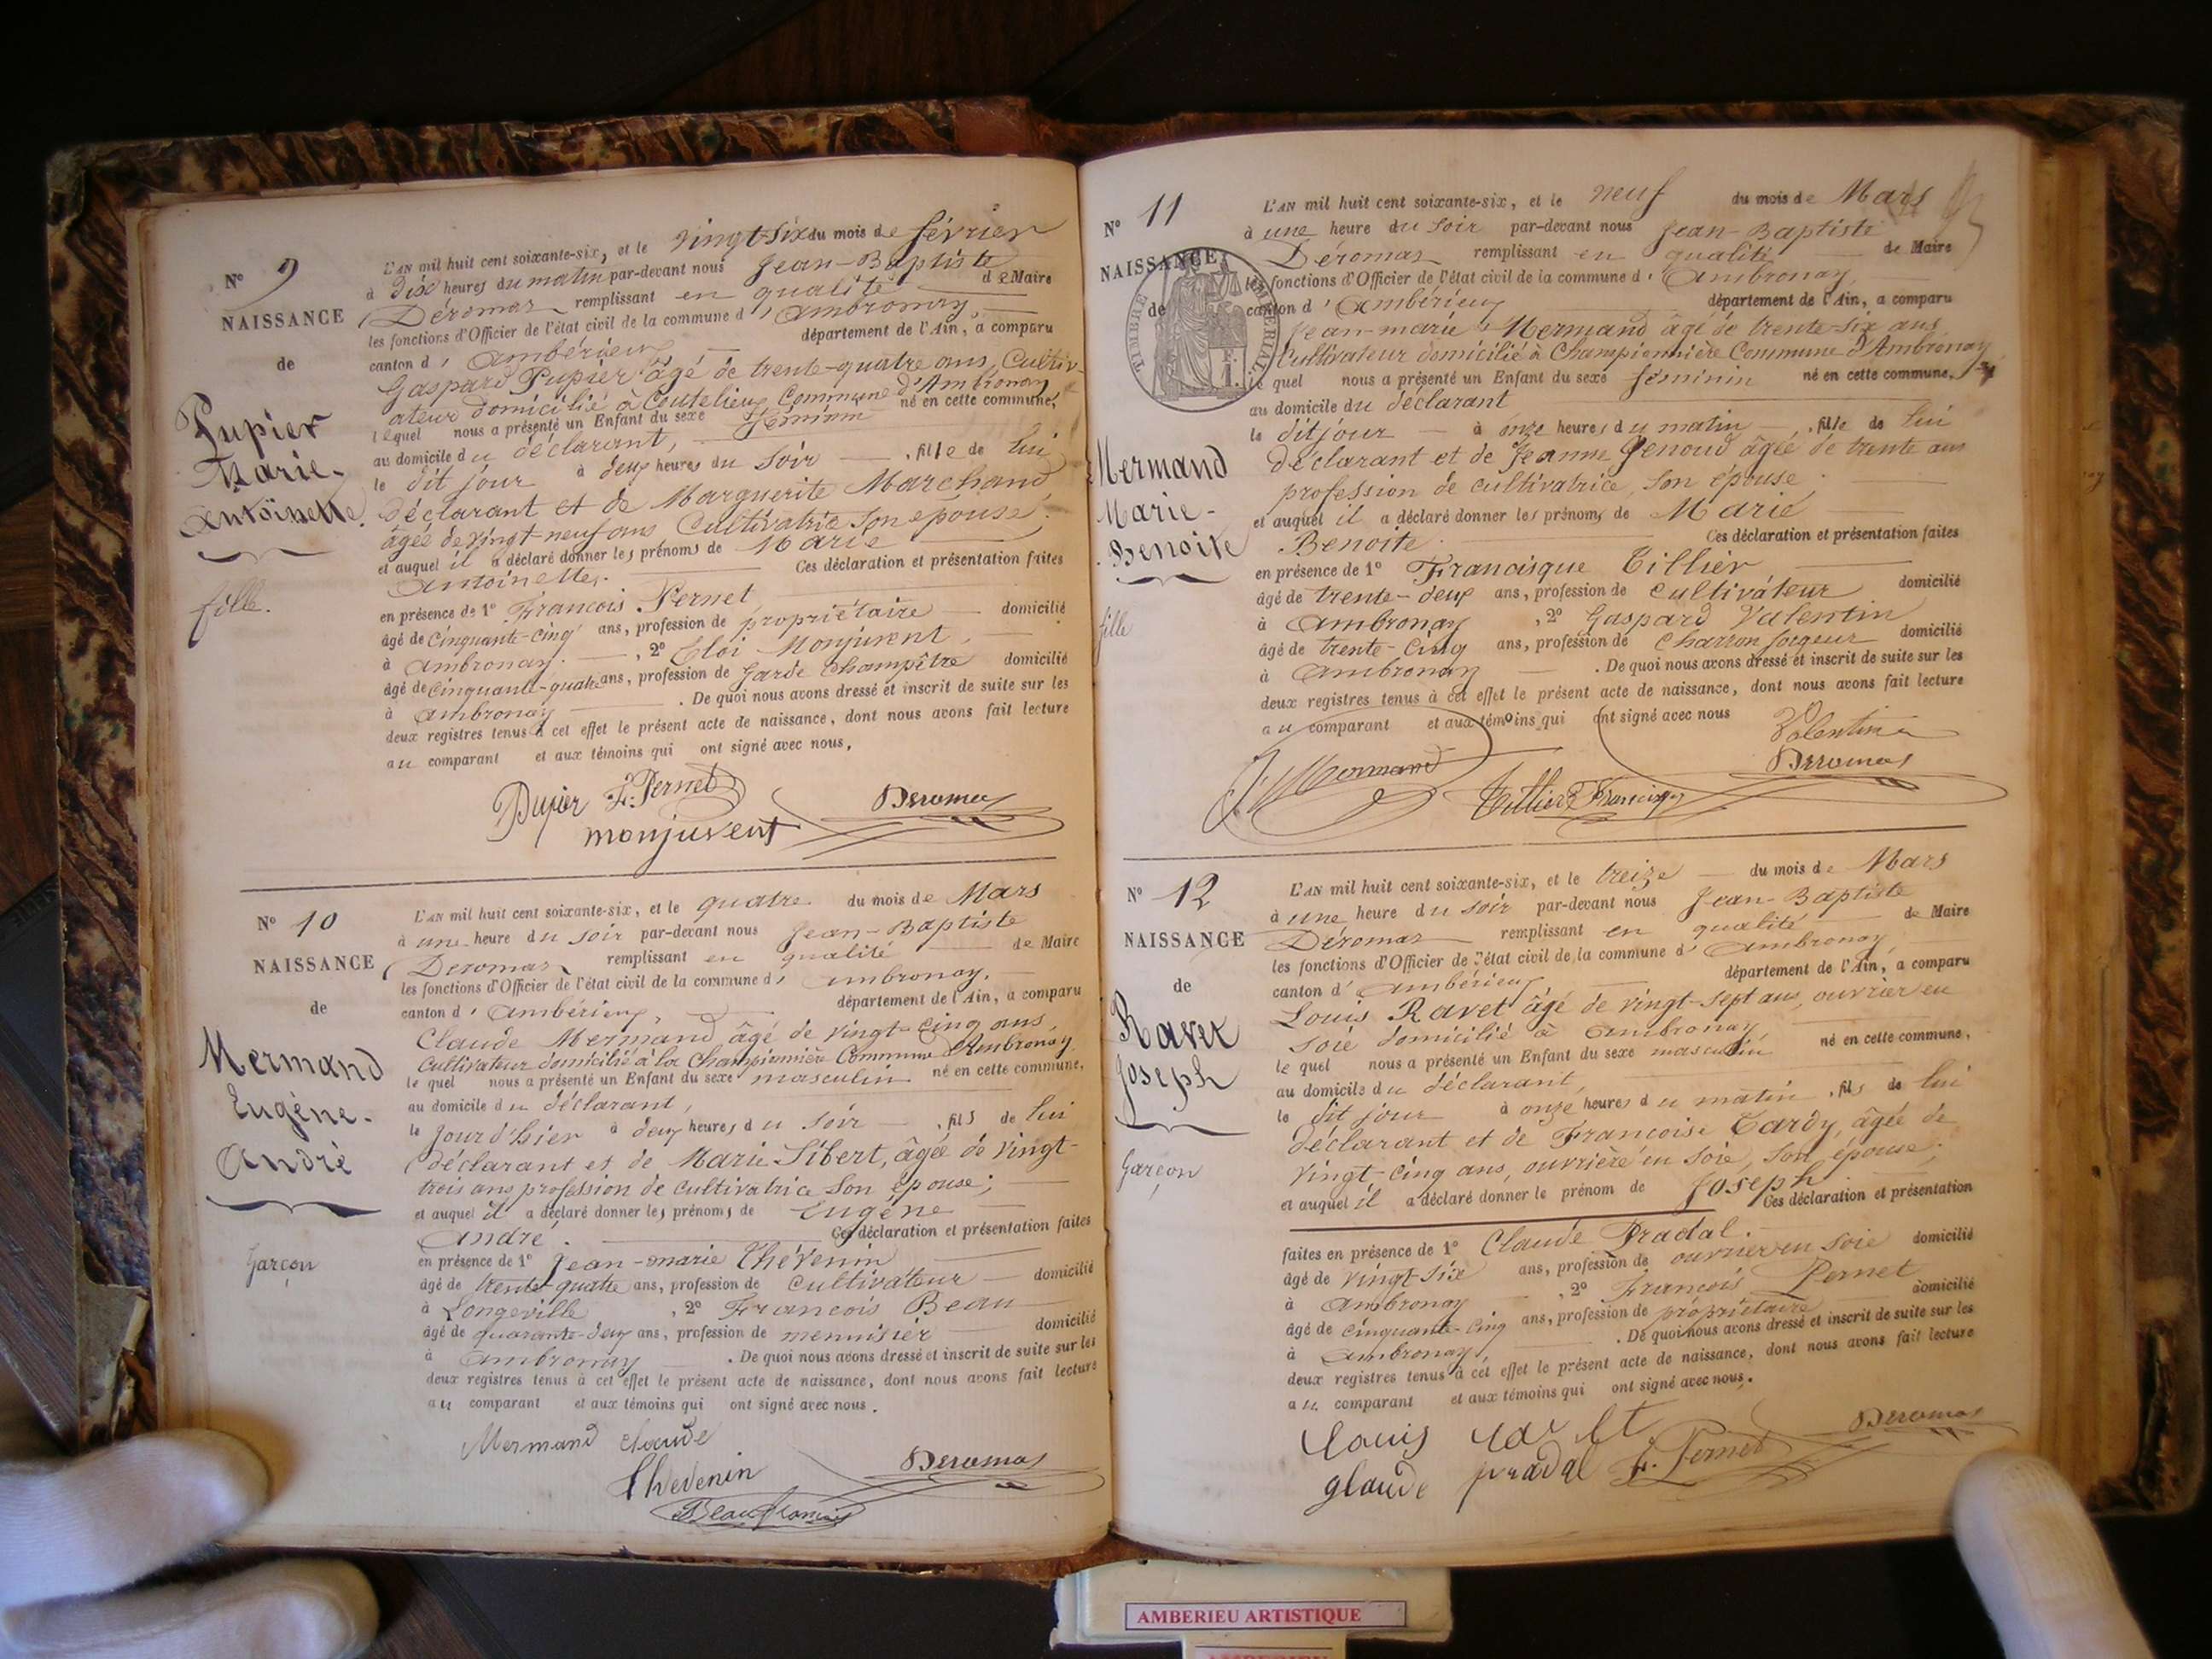 N° 9
NAISSANCE
de
Pupier
Marie-
Antoinette.
fille.
L'AN mil huit cent soixante-six, et le vingt-six du mois de février
à dix heures du matin par-devant nous Jean-Baptiste
Déromas remplissant en qualité de Maire
les fonctions d'Officier de l'état civil de la commune d'Ambronay,
canton d'Ambérieux département de l'Ain, a comparu
Gaspard Pupier âgé de trente-quatre ans, Cultiv-
ateur domicilié à Coutelieux Commune d'Ambronay
lequel nous a présenté un Enfant du sexe féminin né en cette commune,
au domicile du déclarant,
le dit jour à deux heures du soir , fille de lui
déclarant et de Marguerite Marchand,
âgée de vingt-neuf ans Cultivatrice son épouse;
et auquel il a déclaré donner les prénoms de Marie
Antoinette. Ces déclaration et présentation faites
en présence de 1° François Pernet
âgé de cinquante-cinq ans, profession de propriétaire domicilié
à Ambronay. , 2° Eloi Monjuvent
âgé de cinquante-quatre ans, profession de garde champêtre domicilié
à Ambronay . De quoi nous avons dressé et inscrit de suite sur les
deux registres tenus à cet effet le présent acte de naissance, dont nous avons fait lecture
au comparant et aux témoins qui ont signé avec nous.
Pupier F. Pernet Deromas
monjuvent
N° 10
NAISSANCE
de
Mermand
Eugène-
André
Garçon
L'AN mil huit cent soixante-six, et le quatre du mois de Mars
à une heure du soir par-devant nous Jean-Baptiste
Deromas remplissant en qualité de Maire
les fonctions d'Officier de l'état civil de la commune d'Ambronay,
canton d'Ambérieux, département de l'Ain, a comparu
Claude Mermand âgé de vingt-cinq ans,
Cultivateur domicilié à la Championnière Commune d'Ambronay
le quel nous a présenté un Enfant du sexe masculin né en cette commune,
au domicile du déclarant,
le jour d'hier à deux heures du soir , fils de lui
déclarant et de Marie Sibert, âgée de vingt-
trois ans profession de cultivatrice son épouse;
et auquel il a déclaré donner les prénoms de Eugène
André. Ces déclaration et présentation faites
en présence de 1° Jean-marie Thévenin
âgé de trente-quatre ans, profession de cultivateur domicilié
à Longeville , 2° François Beau
âgé de quarante-deux ans, profession de menuisier domicilié
à Ambronay . De quoi nous avons dressé et inscrit de suite sur les
deux registres tenus à cet effet le présent acte de naissance, dont nous avons fait lecture
au comparant et aux témoins qui ont signé avec nous.
Mermand claude
Thevenin Deromas
Beau françois
N° 11
NAISSANCE
de
TIMBRE IMPÉRIAL
Mermand
Marie-
Benoite
fille
L'AN mil huit cent soixante-six, et le neuf du mois de Mars
à une heure du soir par-devant nous Jean-Baptiste
Déromas remplissant en qualité de Maire
les fonctions d'Officier de l'état civil de la commune d'Ambronay,
canton d'Ambérieux département de l'Ain, a comparu
Jean-marie Mermand âgé de trente-six ans
Cultivateur domicilié à Championnière Commune d'Ambronay
le quel nous a présenté un Enfant du sexe féminin né en cette commune,
au domicile du déclarant
le dit jour à onze heures du matin , fille de lui
déclarant et de Jeanne Genoud âgée de trente ans
profession de cultivatrice, son épouse;
et auquel il a déclaré donner les prénoms de Marie
Benoite. Ces déclaration et présentation faites
en présence de 1° Francisque Tillier
âgé de trente-deux ans, profession de cultivateur domicilié
à Ambronay , 2° Gaspard Valentin
âgé de trente-cinq ans, profession de charron forgeur domicilié
à Ambronay . De quoi nous avons dressé et inscrit de suite sur les
deux registres tenus à cet effet le présent acte de naissance, dont nous avons fait lecture
au comparant et aux témoins qui ont signé avec nous
Valentin
Mermand Deromas
N° 12
NAISSANCE
de
Ravet
Joseph
Garçon
L'AN mil huit cent soixante-six, et le treize du mois de Mars
à une heure du soir par-devant nous Jean-Baptiste
Déromas remplissant en qualité de Maire
les fonctions d'Officier de l'état civil de la commune d'Ambronay,
canton d'Ambérieux département de l'Ain, a comparu
Louis Ravet âgé de vingt-sept ans, ouvrier en
soie domicilié à Ambronay,
le quel nous a présenté un Enfant du sexe masculin né en cette commune,
au domicile du déclarant,
le dit jour à onze heures du matin , fils de lui
déclarant et de Françoise Tardy, âgée de
vingt-cinq ans, ouvrière en soie, son épouse;
et auquel il a déclaré donner le prénom de Joseph.
Ces déclaration et présentation
faites en présence de 1° Claude Pradal.
âgé de vingt-six ans, profession de ouvrier en soie domicilié
à Ambronay , 2° François Pernet
âgé de cinquante-cinq ans, profession de propriétaire domicilié
à Ambronay, . De quoi nous avons dressé et inscrit de suite sur les
deux registres tenus à cet effet le présent acte de naissance, dont nous avons fait lecture
au comparant et aux témoins qui ont signé avec nous.
Louis ravet Deromas
glaude pradal F. Pernet
AMBERIEU ARTISTIQUE